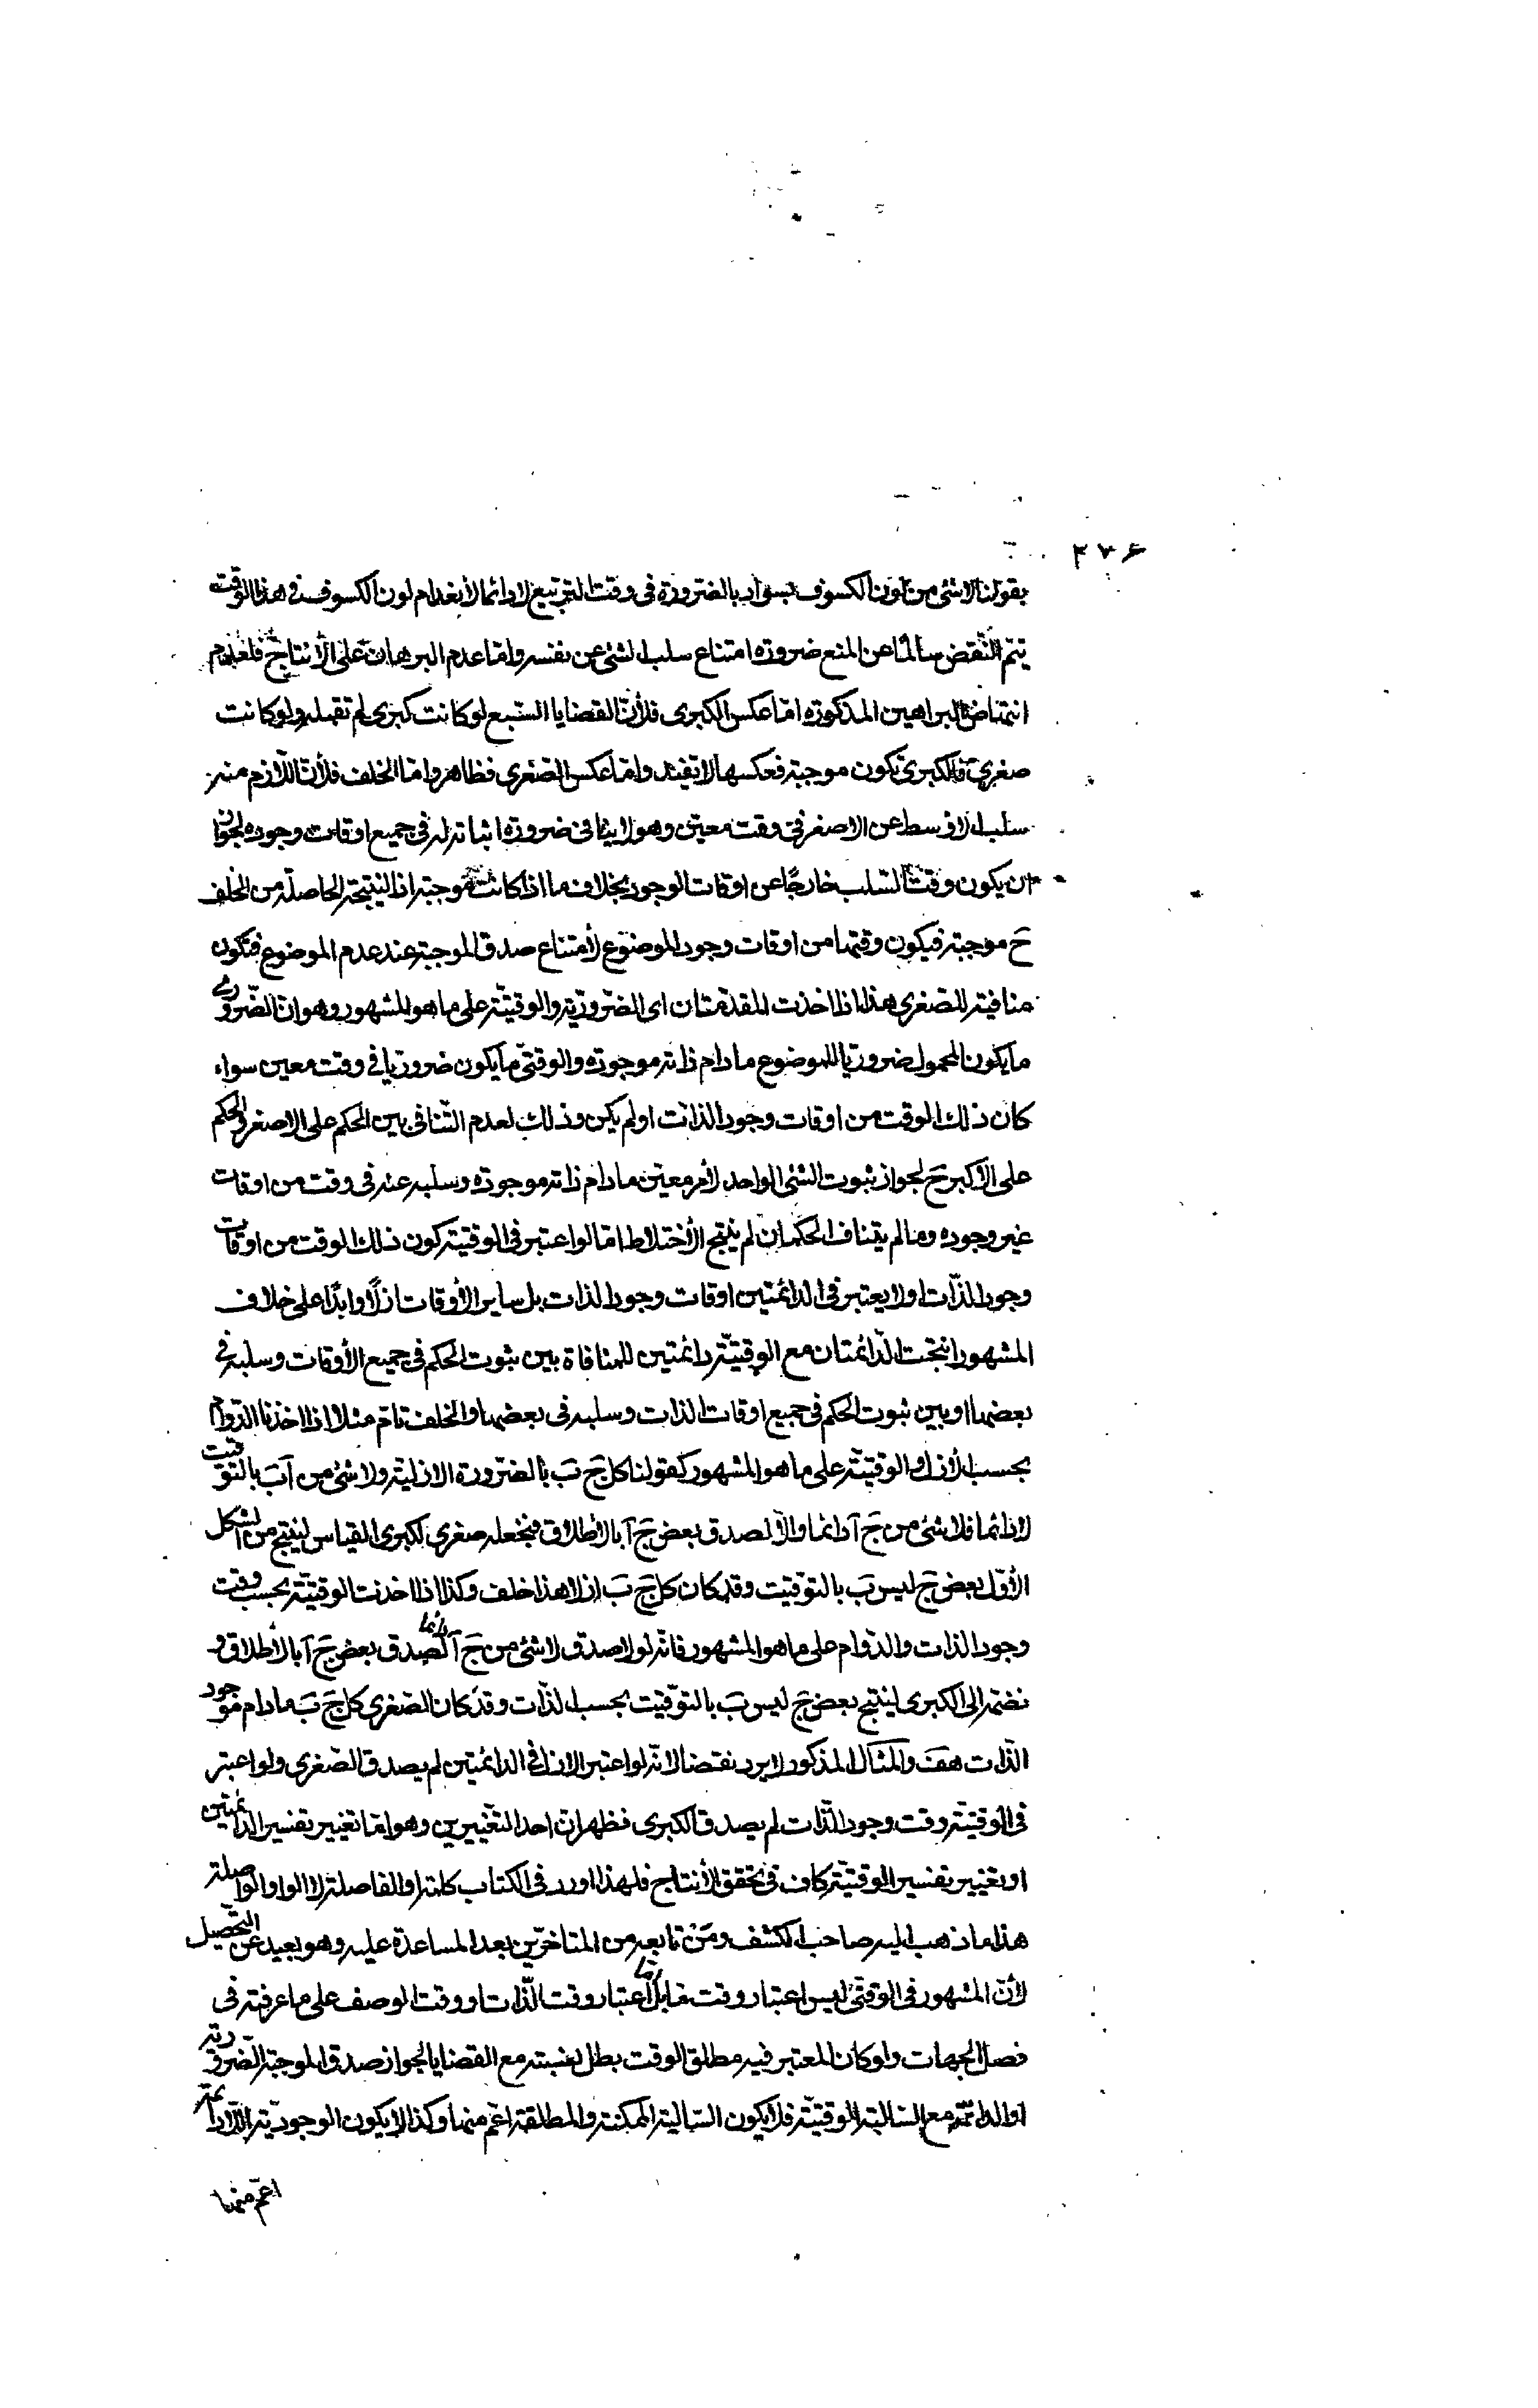 ٣٧۶
بقولنا لا شئ من لون الكسوف بسواد بالضرورة فى وقت التربيع لا دائما لأنعدام لون الكسوف فى هذا الوقت
يتم النقض سالمًا عن المنع ضرورة امتناع سلب الشئ عن نفسه وامّا عدم البرهان على الأنتاج فلعدم
انتهاض البراهين المذكورة امّا عكس الكبرى فلأنّ القضايا السّبع لو كانت كبرى لم تقبله ولو كانت
صغرى فالكبرى تكون موجبة فعكسها لا يفيد وامّا عكس الصّغرى فظاهر وامّا الخلف فلأنّ اللّازم منه
سلب الاوسط عن الاصغر فى وقت معيّن وهو لا ينافى ضرورة اثباته له فى جميع اوقات وجوده لجواز
ان يكون وقت السّلب خارجًا عن اوقات الوجود بخلاف ما اذا كانت موجبة اذ النتيجة الحاصلة من الخلف
ح موجبة فيكون وقتها من اوقات وجود الموضوع لأمتناع صدق الموجبة عند عدم الموضوع فتكون
منافية للصّغرى هذا اذا اخذت المقدّمتان اى الضّروريّة والوقتيّة على ما هو المشهور وهو انّ الضّرورى
ما يكون المحمول ضروريّا للموضوع ما دام ذاته موجودة والوقتىّ ما يكون ضروريا فى وقت معين سواء
كان ذلك الوقت من اوقات وجود الذات او لم يكن وذلك لعدم التّنافى بين الحكم على الاصغر والحكم
على الأكبر ح لجواز ثبوت الشئ الواحد لأمر معيّن ما دام ذاته موجودة وسلبه عنه فى وقت من اوقات
غير وجوده وما لم يتناف الحكمان لم ينتج الأختلاط امّا لو اعتبر فى الوقتية كون ذلك الوقت من اوقات
وجود الذّات او لا يعتبر فى الدائمتين اوقات وجود الذات بل ساير الأوقات ازلًا وابدًا على خلاف
المشهور انتجت الدّائمتان مع الوقتيّة دائمتين للمنافاة بين ثبوت الحكم فى جميع الأوقات وسلبه فى
بعضها او بين ثبوت الحكم فى جميع اوقات الذات وسلبه فى بعضها والخلف تامّ مثلا اذا اخذنا الدّوام
بحسب الأزل والوقتيّة على ما هو المشهور كقولنا كل ج ب بالضرورة الازليّة ولا شئ من آ ب بالتوقيت
لا دائما فلا شئ من ج آ دائما والّا لصدق بعض ج آ بالأطلاق فنجعله صغرى لكبرى القياس لينتج من الشكل
الأوّل بعض ج ليس ب بالتوقيت وقد كان كل ج ب ازلا هذا خلف وكذا اذا اخذت الوقتيّة بحسب وقت
وجود الذات والدّوام على ما هو المشهور فانّه لو لا صدق لا شئ من ج آ دائما لصدق بعض ج آ بالأطلاق و
نضمّه الى الكبرى لينتج بعض ج ليس ب بالتوقيت بحسب الذّات وقد كان الصّغرى كل ج ب ما دام موجود
الذّات هف والمثال المذكور لا يرد نقضا لانّه لو اعتبر الازل فى الدائمتين لم يصدق الصّغرى ولو اعتبر
فى الوقتيّة وقت وجود الذّات لم يصدق الكبرى فظهر انّ احد التغييرين وهو امّا تغيير تفسير الدائمتين
او تغيير تفسير الوقتيّة كاف فى تحقق الأنتاج فلهذا اورد فى الكتاب كلمة او الفاصلة لا الواو الواصلة
هذا ما ذهب اليه صاحب الكشف ومن تابعه من المتاخّرين بعد المساعدة عليه وهو بعيد عن التحصيل
لأنّ المشهور فى الوقتىّ ليس اعتبار وقت ما بل امّا اعتبار وقت الذّات او وقت الوصف على ما عرفته فى
فصل الجهات ولو كان المعتبر فيه مطلق الوقت بطل نسبته مع القضايا لجواز صدق الموجبة الضّرورية
او الدائمة مع السّالبة الوقتيّة فلا يكون السّالبة الممكنة والمطلقة اعّم منها وكذا لا يكون الوجوديّة اللّادائمة
اعمّ منها